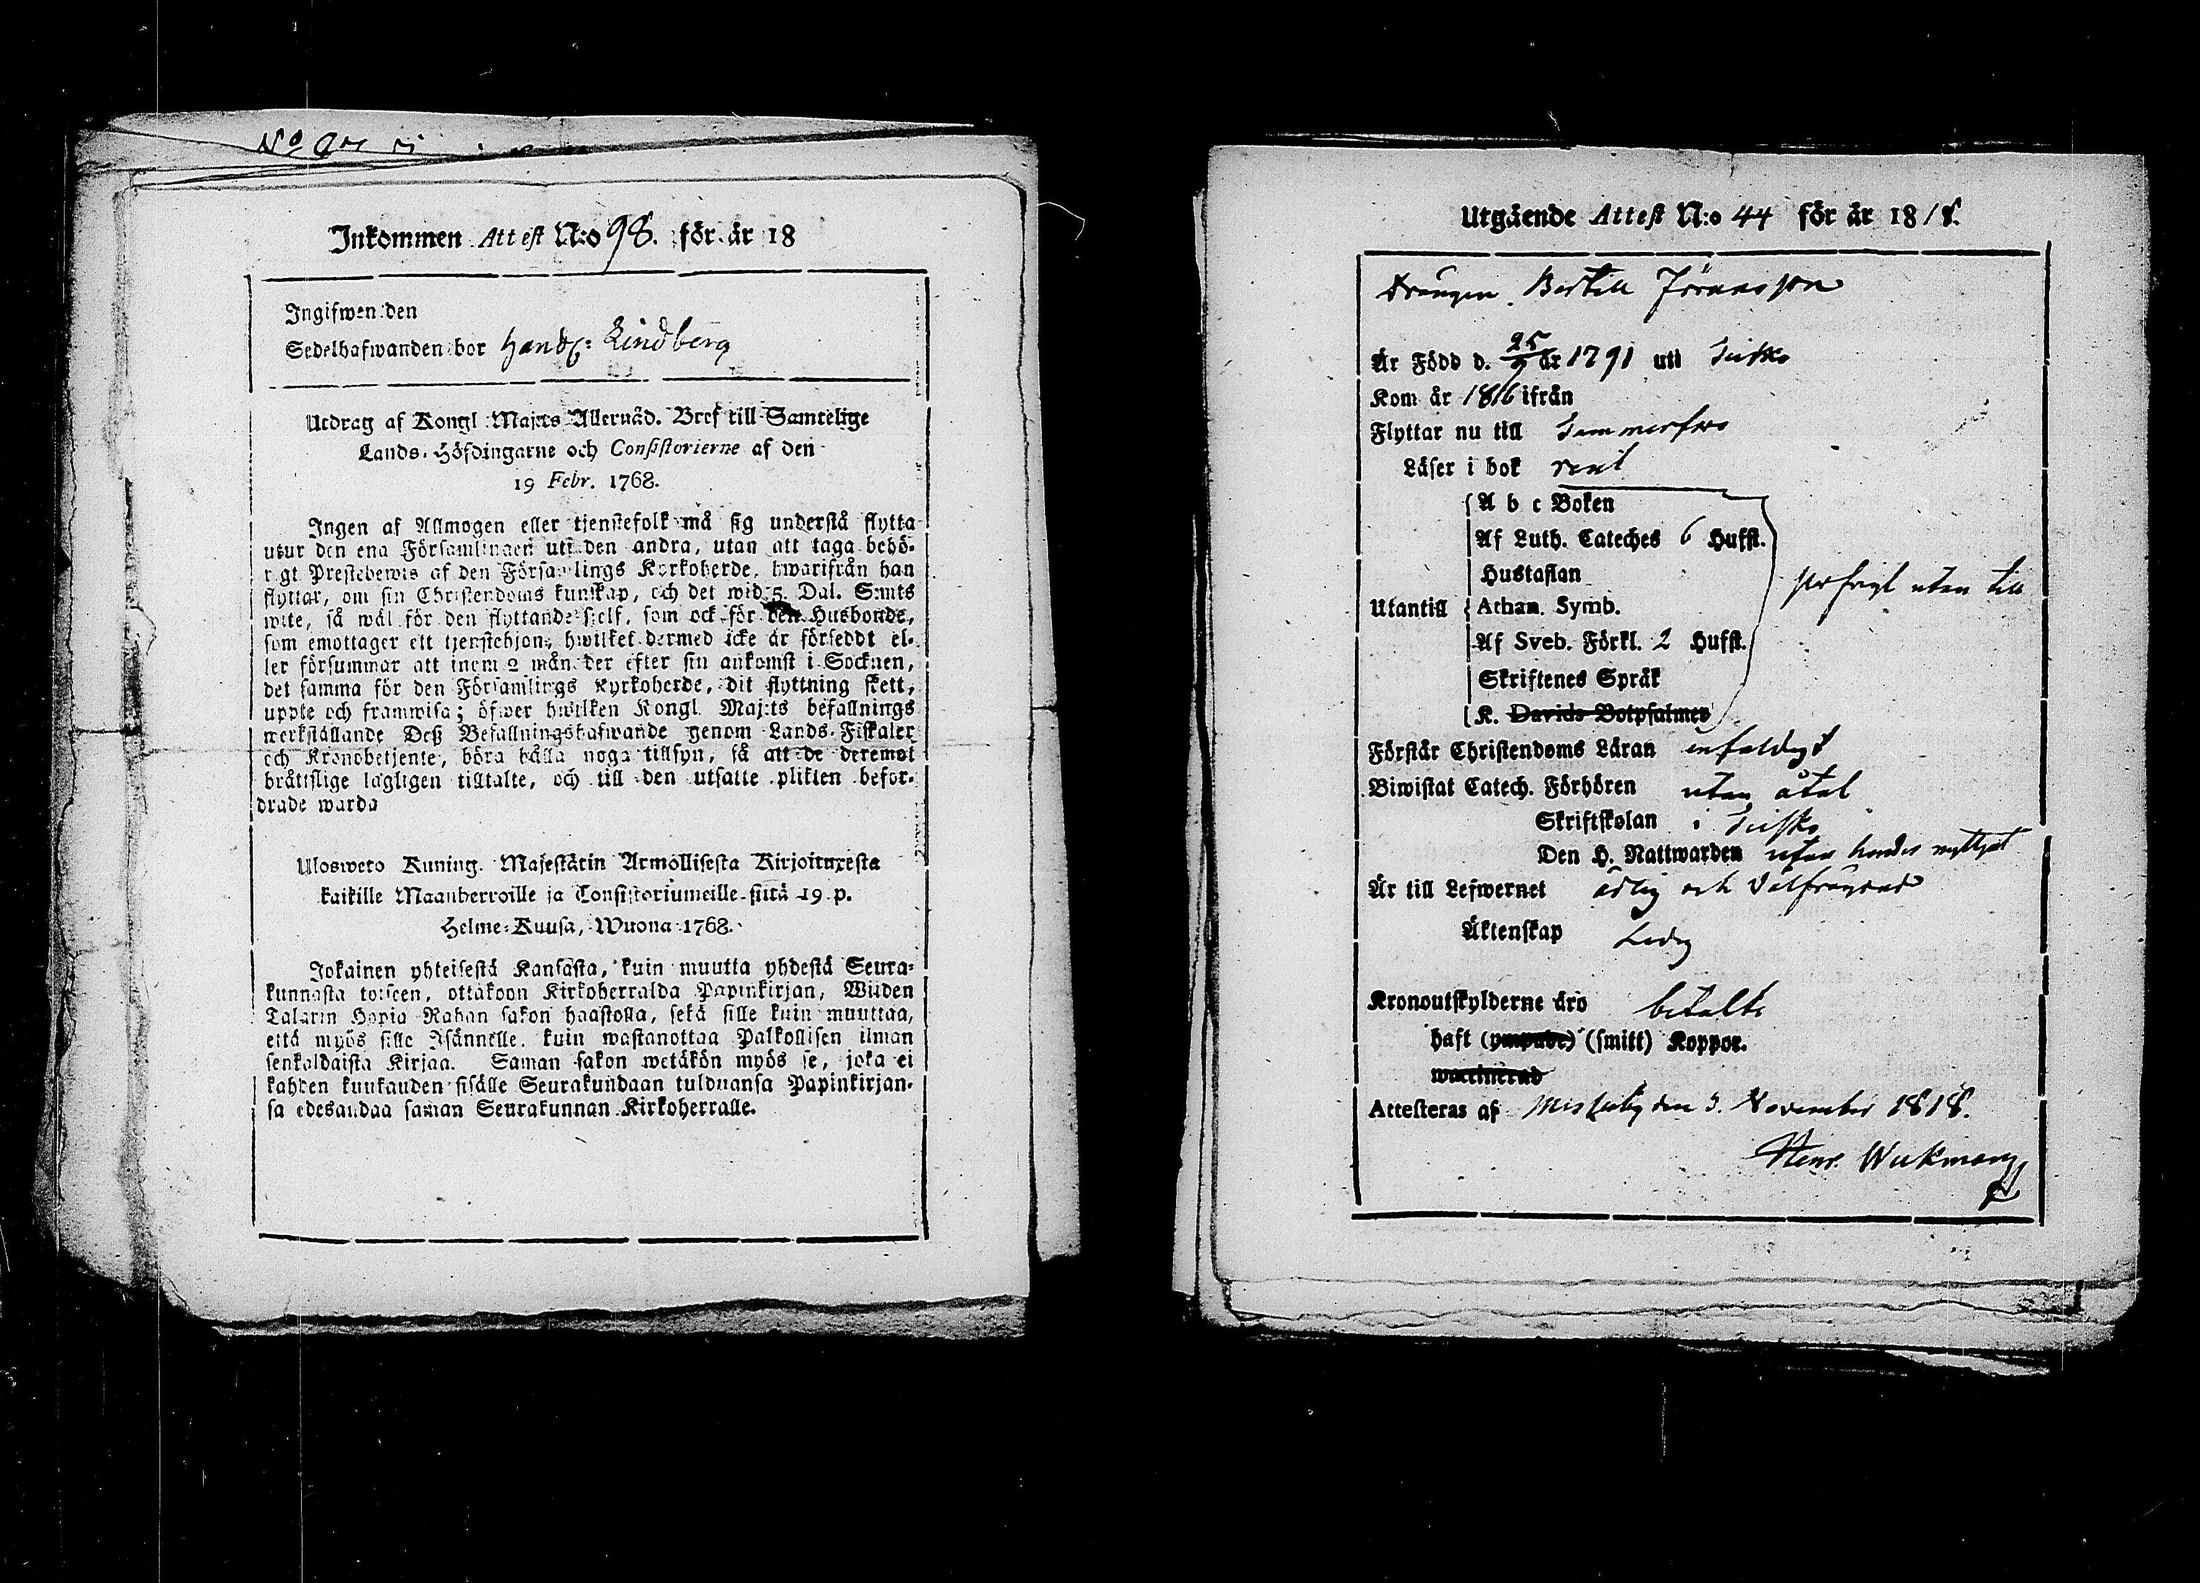 Inkommen Attest N:o 98. för år 18
Ingifwen den
Sedelhafwanden bor Handl: Lindberg
Utdrag af Kongl. Maj:ts Allernåd. Bref till Samtelige
Lands-Höfdingarne och Consistorierne af den
19 Febr. 1768.
Ingen af Allmogen eller tjenstefolk må sig understå flytta
utur den ena Församlingen uti den andra, utan att taga behö-
rigt Prestebewis af den Församlings Kyrkoherde, hwarifrån han
flyttar, om sin Christendoms kunskap, och det wid 5. Dal. S:mts
wite, så wäl för den flyttande sjelf, som ock för den Husbonde,
som emottager ett tjenstehjon, hwilket dermed icke är försedt el-
ler försummar att inom 2 månader efter sin ankomst i Socknen,
det samma för den Församlings Kyrkoherde, dit flyttning skett,
uppte och framwisa; öfwer hwilken Kongl. Maj:ts befallnings
werkställande Deß Befallningshafwande genom Lands-Fiskaler
och Kronobetjente, böra hålla noga tillsyn, så att de deremot
bråttslige lagligen tilltalte, och till den utsatte plikten befor-
drade warda
Ulosweto Kuning. Majestätin Armollisesta Kirjoituxesta
kaikille Maanherroille ja Consistoriumeille siitä 19 p.
Helme-Kuusa, Wuona 1768.
Jokainen yhteisestä Kansasta, kuin muutta yhdestä Seura-
kunnasta toiseen, ottakoon Kirkoherralda Papinkirjan, Wiiden
Talarin Hopia Rahan sakon haastolla, sekä sille kuin muuttaa,
että myös sille Isännelle, kuin wastanottaa Palkollisen ilman
senkaldaista Kirjaa. Saman sakon wetäkön myös se, joka ei
kahden kuukauden sisälle Seurakundaan tulduansa Papinkirjan-
sa edesandaa saman Seurakunnan Kirkoherralle.
Utgående Attest N:o 44 för år 1818.
Drängen Bertill Jöransson
Är Född d. 25/9 år 1791 uti
Kom år 1816 ifrån
Flyttar nu till Tammerfors
Läser i bok rent
A b c Boken
Af Luth. Cateches 6 Hufst.
Hustaflan
Utantill Athan. Symb.
Af Sveb. Förkl. 2 Hufst.
Skriftenes Språk
K. Davids Botpsalmer
utan till
Förstår Christendoms Läran enfaldigt
Biwistat Catech. Förhören utan åtal
Skriftskolan i
Den H. Nattwarden utan hinder nyttjat
Är till Lefwernet ärlig och välfräjdad
Äktenskap Ledig
Kronoutskylderne äro betalte
haft (ympade) (smitt) Koppor.
waccinerad
Attesteras af Messuby den 3. November 1818.
Henr. Wickman